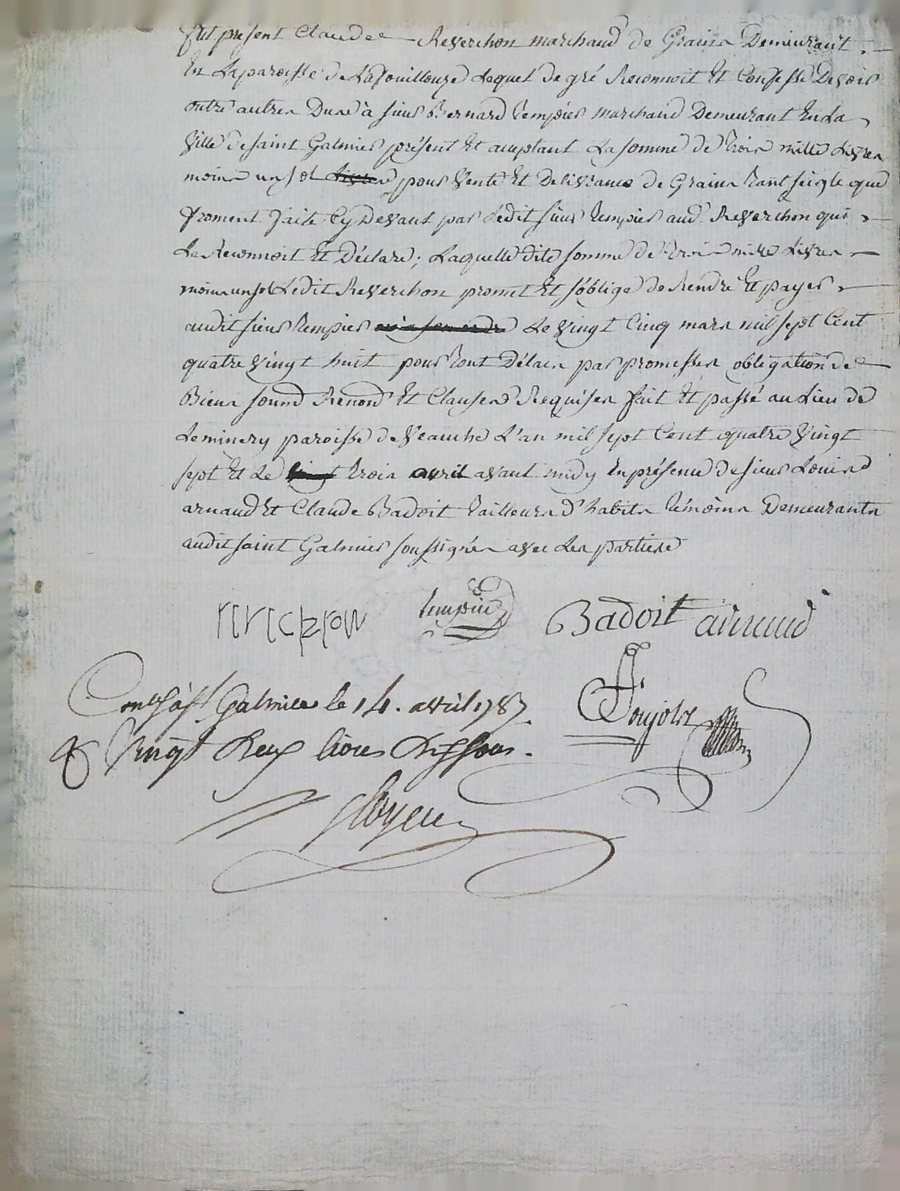 fut présent Claude Reverchon marchand de Grains Demeurant
En La paroisse de Lafouillouze Lequel de gré Reconnoit Et Confesse Devoir
outre autres Dues à sieur Bernard Rempier marchand Demeurant En La
Ville de saint Galmier présent Et aceptant La somme de trois mille Livres
moins un sol pour Vente Et Délivrance de Grains tant seigle que
froment faite Cy Devant par Ledit sieur Rempier aud. Reverchon qui
Le Reconnoit Et Déclare; Laquelle dite somme de trois mille Livres
moins un sol Ledit Reverchon promet Et s'oblige de Rendre Et payer
audit sieur Rempier Le Vingt Cinq mars mil sept Cent
quatre Vingt huit pour tout Délais par promesses obligation de
Biens soumd Renond Et Clauses Requises fait Et passé au Lieu de
Leminery paroisse de Veauche L'an mil sept Cent quatre Vingt
sept Et Le trois avril avant midy En présence de sieurs Louis
arnaud Et Claude Badoit tailleurs d'habits témoins Demeurants
audit saint Galmier soussignés avec Les parties
Badoit arnaud
Conllé à St Galmier le 14. avril 1787.
R Vingt Deux livres dix sous.